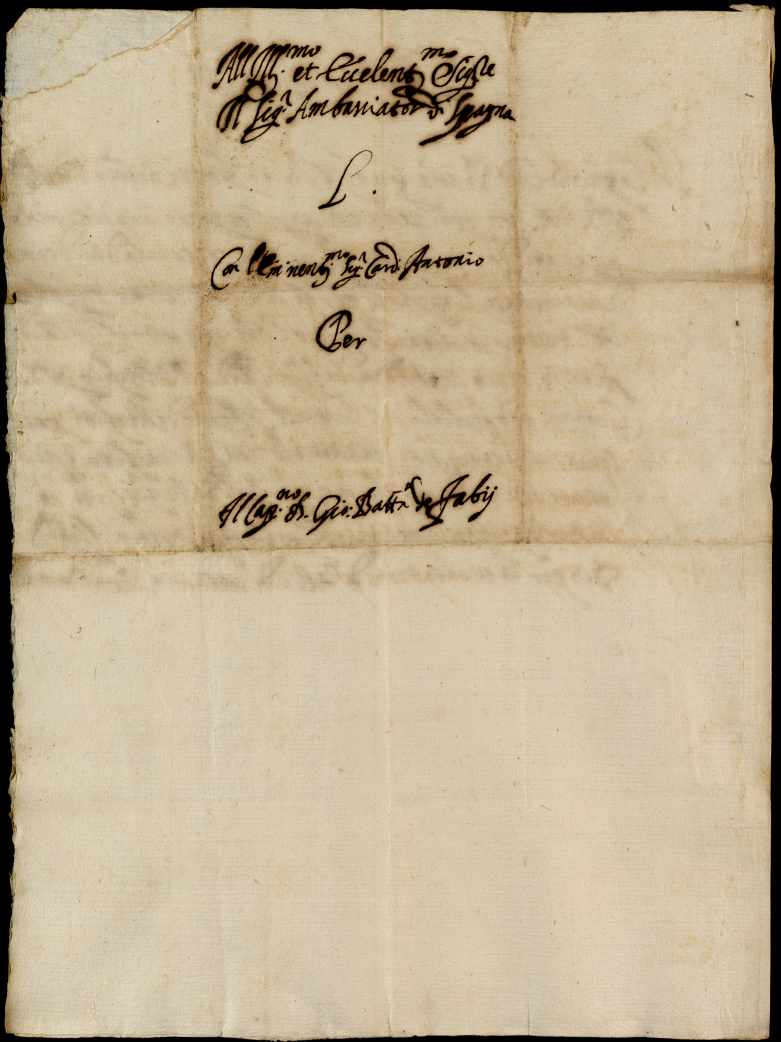 All Ill.mo et Ecelent.mo Sig.re
Il Sig.r Ambasciator di Spagna
L.
Con l'Eminent.mo Sig.r Card. Antonio
Per
Il Cap.no Gio: Batt.a de Fabij